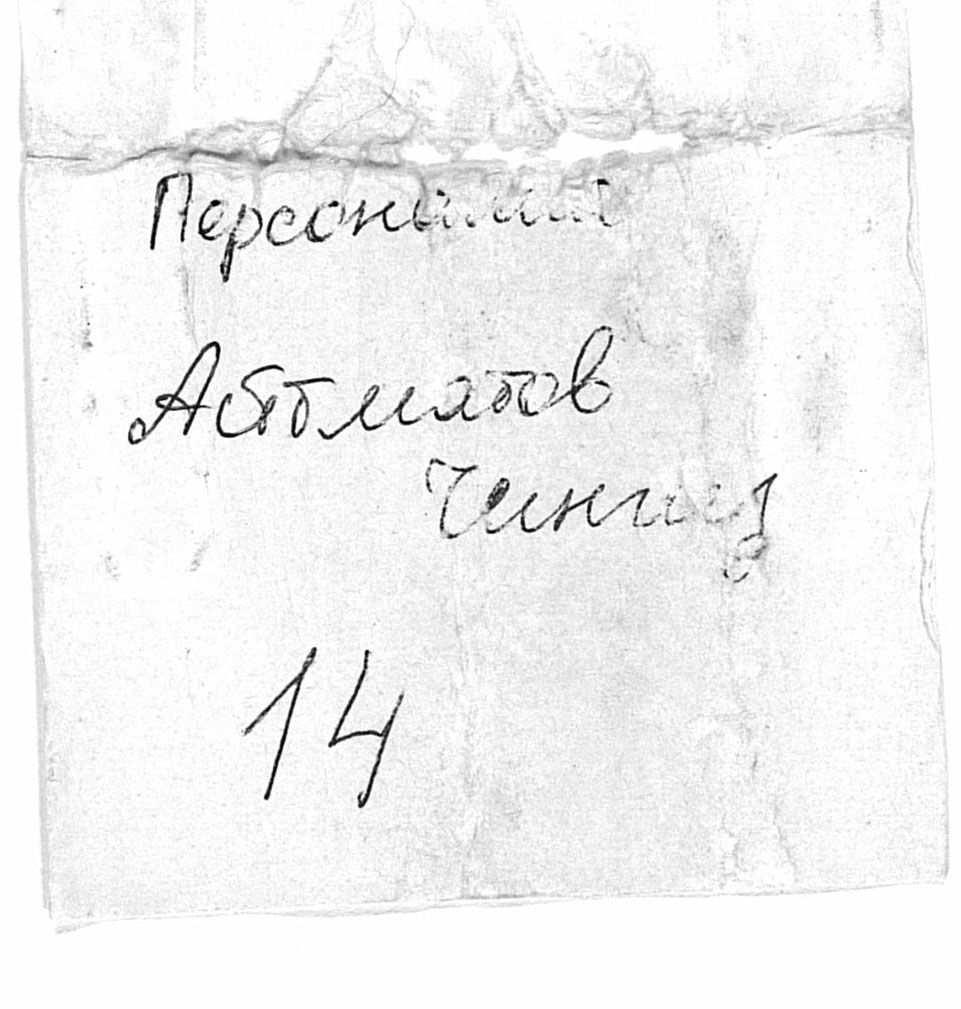 Персональный
Айтматов
Чингиз
14